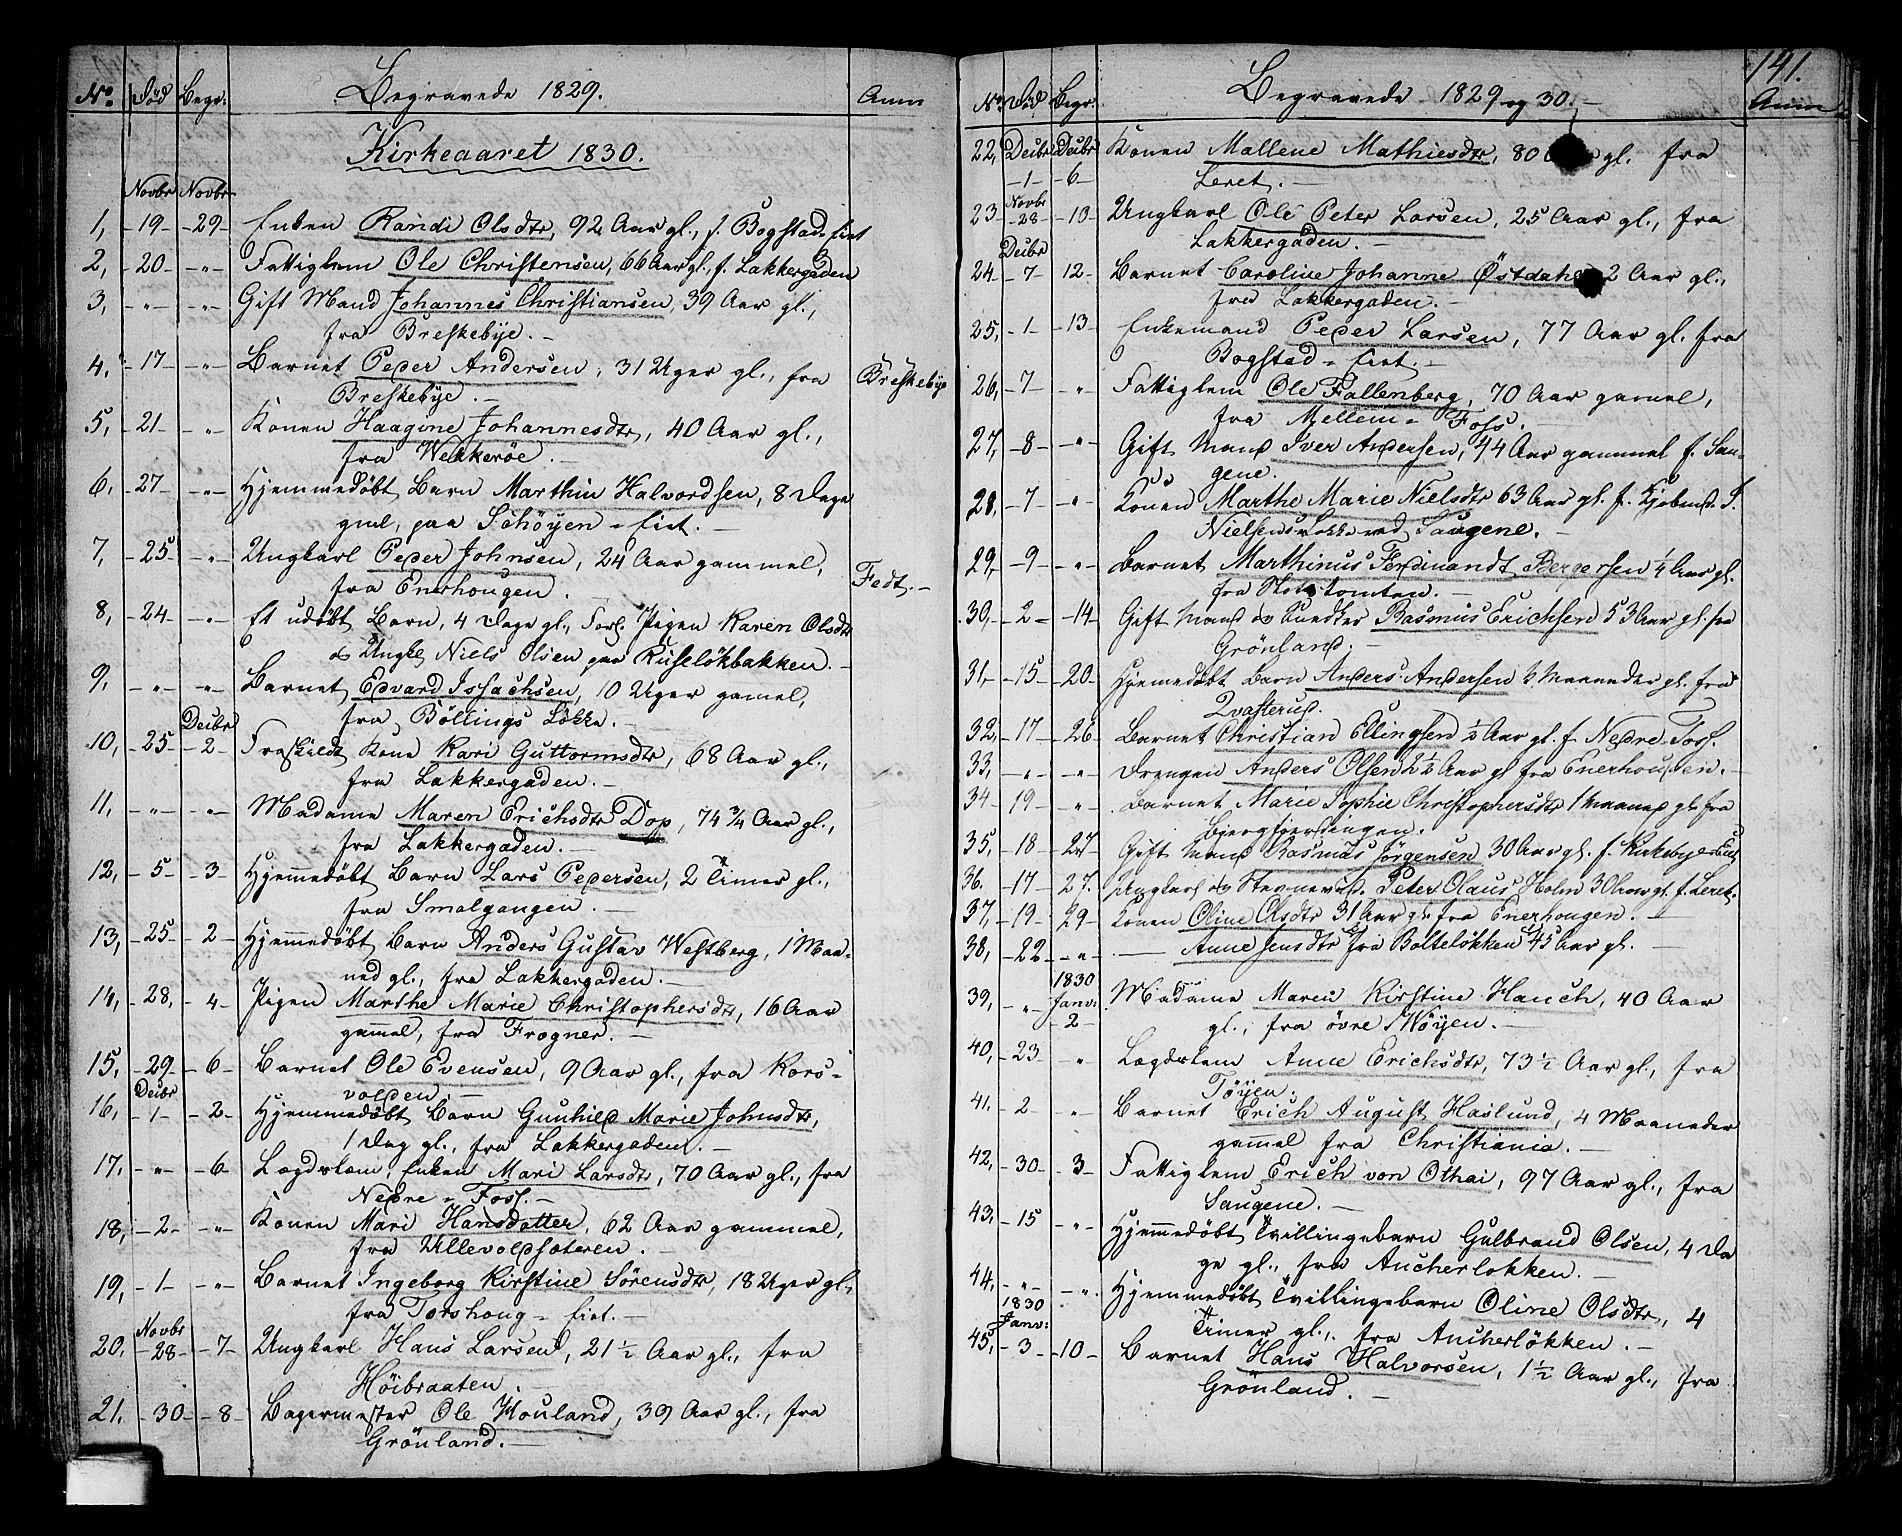 No. Død Begr: Begravede 1829. Anm
Kirkeaaret 1830.
Novbr Novbr
1, 19 29 Enken Randi Olsdtr, 92 Aar gl., f. Bogstad-Eiet
2, 20 " Fattiglem Ole Christensen, 66 Aar gl., f. Lakkergaden
3, " " Gift Mand Johannes Christiansen, 39 Aar gl.,
fra Breskebye.
4, 17 " Barnet Peder Andersen, 31 Uger gl., fra Breskebye
Breskebye.
5, 21 " Konen Haagine Johannesdtr, 40 Aar gl.,
fra Wekkerøe.
6, 27 " Hjemmedøbt Barn Marthin Halvordsen, 8 Dage
gml, paa Schöyen-Eiet.
7, 25 " Ungkarl Peder Johnsen, 24 Aar gammel,
fra Enerhougen. Fedt.
8, 24 " Et udøbt Barn, 4 Dage gl., Forl. Pigen Karen Olsdtr
og Ungkl Niels Olsen paa Ruseløkbakken.
9, " " Barnet Edvard Issachsen, 10 Uger gamel,
fra Böllings Løkke.
Decbr
10, 25 2 Fraskildt Kone Kari Guttormsdtr, 68 Aar gl.,
fra Lakkergaden.
11, " " Madame Maren Erichsdtr Dop, 74 3/4 Aar gl.,
fra Lakkergaden.
12, 5 3 Hjemedøbt Barn Lars Pedersen, 2 Timer gl.,
fra Smalgangen.
13, 25 2 Hjemedøbt Barn Anders Gustav Westberg, 1 Maa-
ned gl., fra Lakkergaden.
14, 28, 4 Pigen Marthe Marie Christophersdtr, 16 Aar
gamel, fra Frogner.
15, 29 6 Barnet Ole Evensen, 9 Aar gl., fra Kors-
volden.
Decbr
16, 1 2 Hjemmedøbt Barn Gunhild Marie Johnsdtr,
1 Dag gl., fra Lakkergaden.
17, " 6 Lægdslem, Enken Mari Larsdtr, 70 Aar gl., fra
Nedre-Foss.
18, 2 " Konen Mari Hansdatter, 62 Aar gammel,
fra Ullevoldsæteren.
19, 1 " Barnet Ingeborg Kirstine Sörensdtr, 18 Uger gl.
fra Torshoug-Eiet.
Novbr
20, 28 7 Ungkarl Hans Larsen, 21 1/2 Aar gl., fra
Höibraaten.
21. 30 8 Bagermester Ole Houland, 39 Aar gl., fra
Grönland.
141.
No Død Begr. Begravede 1829 og 30. Anm
22, Decbr Decbr Konen Mallene Mathiesdtr, 80 gl. fra
1 6 Leret.
Novbr
23 28 10 Ungkarl Ole Peter Larsen, 25 Aar gl., fra
Lakkergaden.
Decbr
24 7 12 Barnet Caroline Johanne Östdahl 2 Aar gl.,
fra Lakkergaden.
25, 1 13 Enkemand Peder Larsen, 77 Aar gl. fra
Bogstad-Eiet.
26, 7 " Fattiglem Ole Fallenberg, 70 Aar gamel,
fra Mellem-Foss.
27, 8 " Gift Mand Iver Andersen, 44 Aar gammel f. Sau-
gene.
28, 7 " Konen Marthe Marie Nielsdtr 63 Aar gl. f. Kjøbmd. S.
Nielsens Løkke ved Saugene.
29, 9 " Barnet Marthinus Ferdinandt Pedersen 1/4 Aar gl.
fra Slotstomten.
30, 2 14 Gift Mand og Snedker Rasmus Erichsen 53 Aar gl. fra
Grönland.
31, 15 20 Hjemedøbt Barn Anders Andersen Maaneder gl. fra
Qvasterud.
32, 17 26 Barnet Christian Ellingsen 1/2 Aar gl. f. Nedre Foss.
33, " " Drengen Anders Olsen 2 1/2 Aar gl fra Enerhougen.
34 19 " Barnet Marie Sophie Christophersdtr 1 Maaned gl. fra
Bjergfjerdingen.
35, 18 27 Gift Mand Rasmus Jörgensen 30 Aar gl. f. Kirkebye
36. 17 27. Ungkarl og Peter Olaus Holm 30 Aar gl. f. Leret.
37, 19 29 Konen Oline Olsdtr 31 Aar gl. fra Enerhougen.
38, 22 " Anne Jensdtr fra Bolteløkken 45 Aar gl.
1830
39, " Janv: Madame Maren Kirstine Hauch, 40 Aar
2 gl., fra övre Wöyen.
40, 23 " Lægdslem Anne Erichsdtr, 73 1/2 Aar gl., fra
Töyen.
41. 2 " Barnet Erich August Haslund, 4 Maaneder
gammel fra Christiania.
42, 30 3 Fattiglem Erich von Othai, 97 Aar gl., fra
Saugene.
43, 15 " Hjemmedøbt Tvillingebarn Gulbrand Olsen, 4 Da
ge gl., fra Aucherløkken.
44, " " Hjemmedøbt Tvillingebarn Oline Olsdtr, 4
Timer gl., fra Aucherløkken.
1830
Janv:
45, 3 10 Barnet Hans Halvorsen, 1 1/2 Aar gl., fra
Grönland.